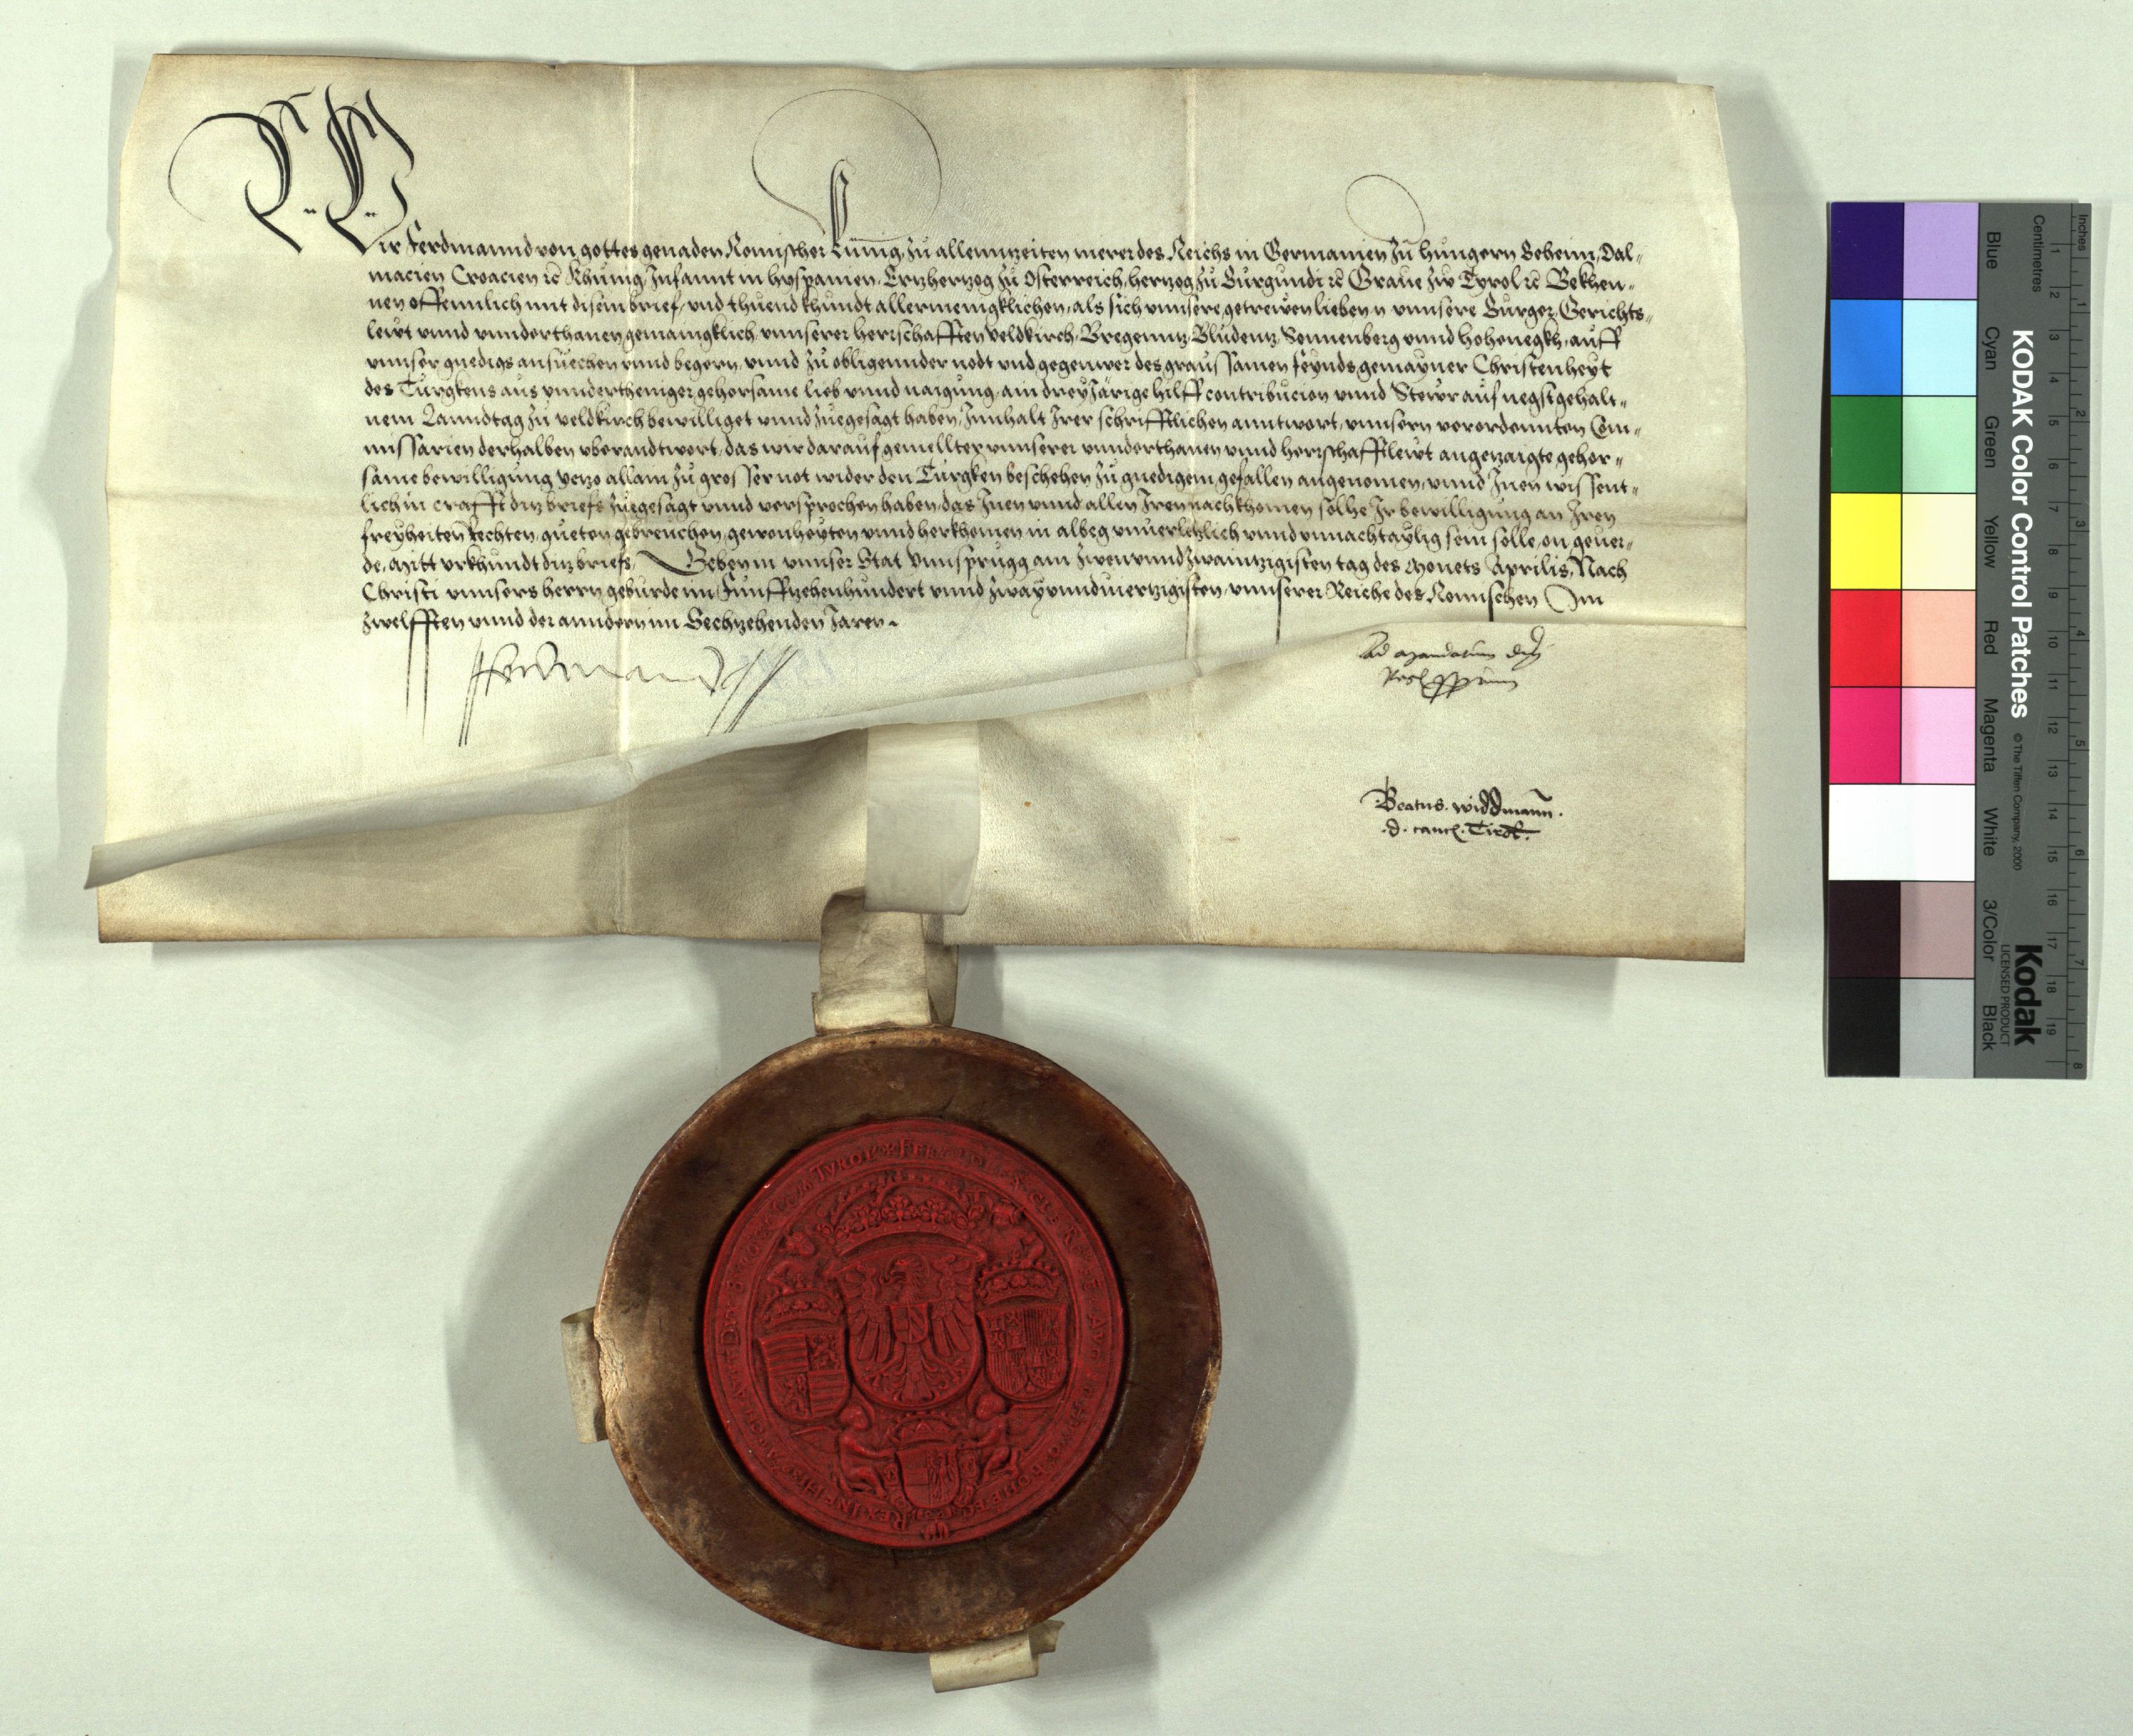 Wir Ferdinannd von gottes genaden Romischer Künig, zu allenntzeiten merer des Reichs in Germanien zu hungern Beheim, Dal-
macien Croacien rc Khunig, Infannt in hyspanien, Ertzhertzog zu Osterreich, hertzog zu Burgundi rc Graue zw Tyrol rc Bekhen-
nen offennlich mit disem brief, vnd thuend khundt allermenigklichen, als sich vnnsere getrewen lieben n vnnsere Burger, Gerichts-
lewt vnnd vnnderthanen gemaingklich vnnserer herrschafften Veldkirch, Bregenntz, Bludentz, Sonnenberg vnnd hohenegkh, auff
vnnser gnedigs ansuechen vnnd begern, vnnd zu obligennder nodt vnd gegenwer des graussamen feynds gemayner Christenheyt
des Turgkens aus vnnderthenigen gehorsame lieb vnnd naigung, ain drey Järige hilff contribucion vnnd Stewr auf negstgehalt-
nem Lanndtag zu Veldkirch bewilliget vnnd zuegesagt haben, Innhalt Irer schrifftlichen anntwort, vnnsern verordennten Com-
missarien derhalben vberandtwort, das wir darauf gemellter vnnserer vnnderthanen vnnd herrschafftlewt angetzaigte gehor-
same bewilligung yetzo allain zu grosser not wider den Turgken beschehen zu gnedigem gefallen angenomen, vnnd Inen wissent-
lich in crafft ditz briefs zuegesagt vnnd versprochen haben, das Inen vnnd allen Iren nachkhomen solhe Ir bewilligung an Iren
freyheiten Rechten, gueten gebreuchen, gewonheyten vnnd herkhomen in albeg vnuerletzlich vnnd vnnachtaylig sein solle, on geuer-
de, Mitt vrkhundt ditz briefs, Geben in vnnser Stat Ynnsprugg am zwenvnndzwaintzigisten tag des Monets Aprilis, Nach
Christi vnnsers herrn geburde im Funfftzehenhundert vnnd zwayvnnduiertzigisten, vnnserer Reiche des Romischen Im
zwelfften vnnd der anndern im Sechtzehenden Jaren.
Ferdinand
Ad Mandatum dni
Regis
Beatus. Widdmann.
.d. canc. Tirol.
COM TYROL FER
KODAK Color Control Patches
© The Tiffen Company, 2000
Kodak
LICENSED PRODUCT
Inches
Centimetres
1 2 3 4 5 6 7 8
1 2 3 4 5 6 7 8 9 10 11 12 13 14 15 16 17 18 19
Blue
Cyan
Green
Yellow
Red
Magenta
White
3/Color
Black